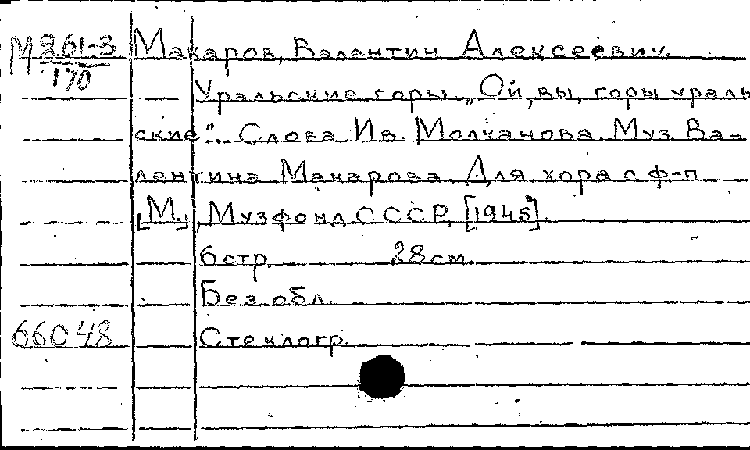 М 261-3 Макаров, Валентин Алексеевич.
170
Уральские горы. „Ой, вы, горы ураль
ские“... Слова Ив. Молчанова. Муз. Ва-
лентина Макарова. Для хора с ф-п
[М.], Музфонд СССР, [1945].
6 стр. 28 см.
Без обл.
66048 Стеклогр.